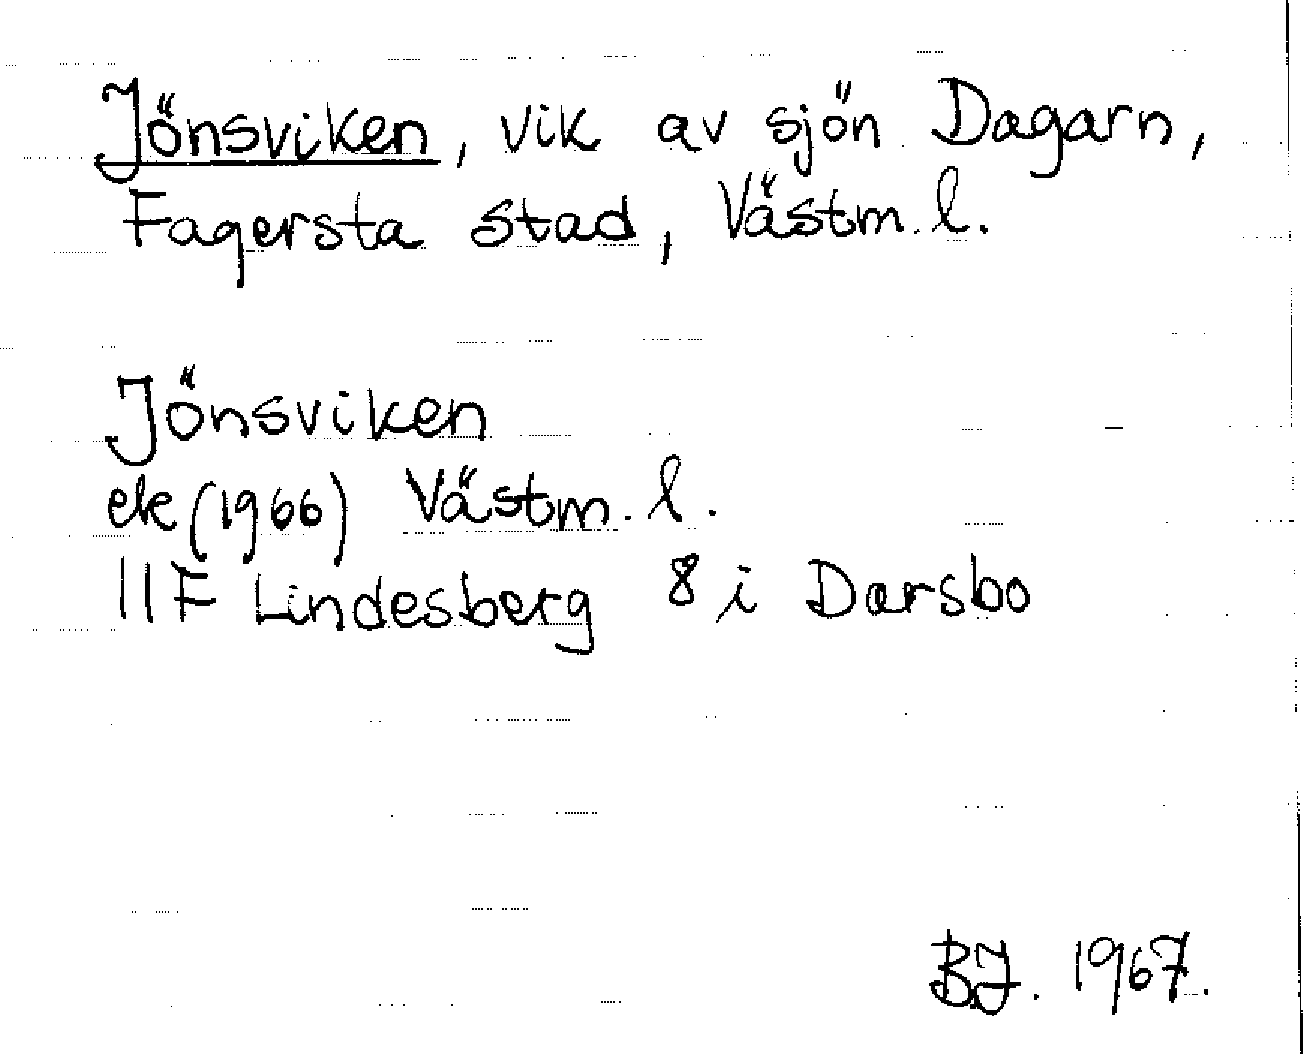 Jönsviken, vik av sjön Dagarn,
Fagersta stad, Västm. l.
Jönsviken
ek (1966) Västm. l.
11F Lindesberg 8 i Darsbo
BJ. 1967.